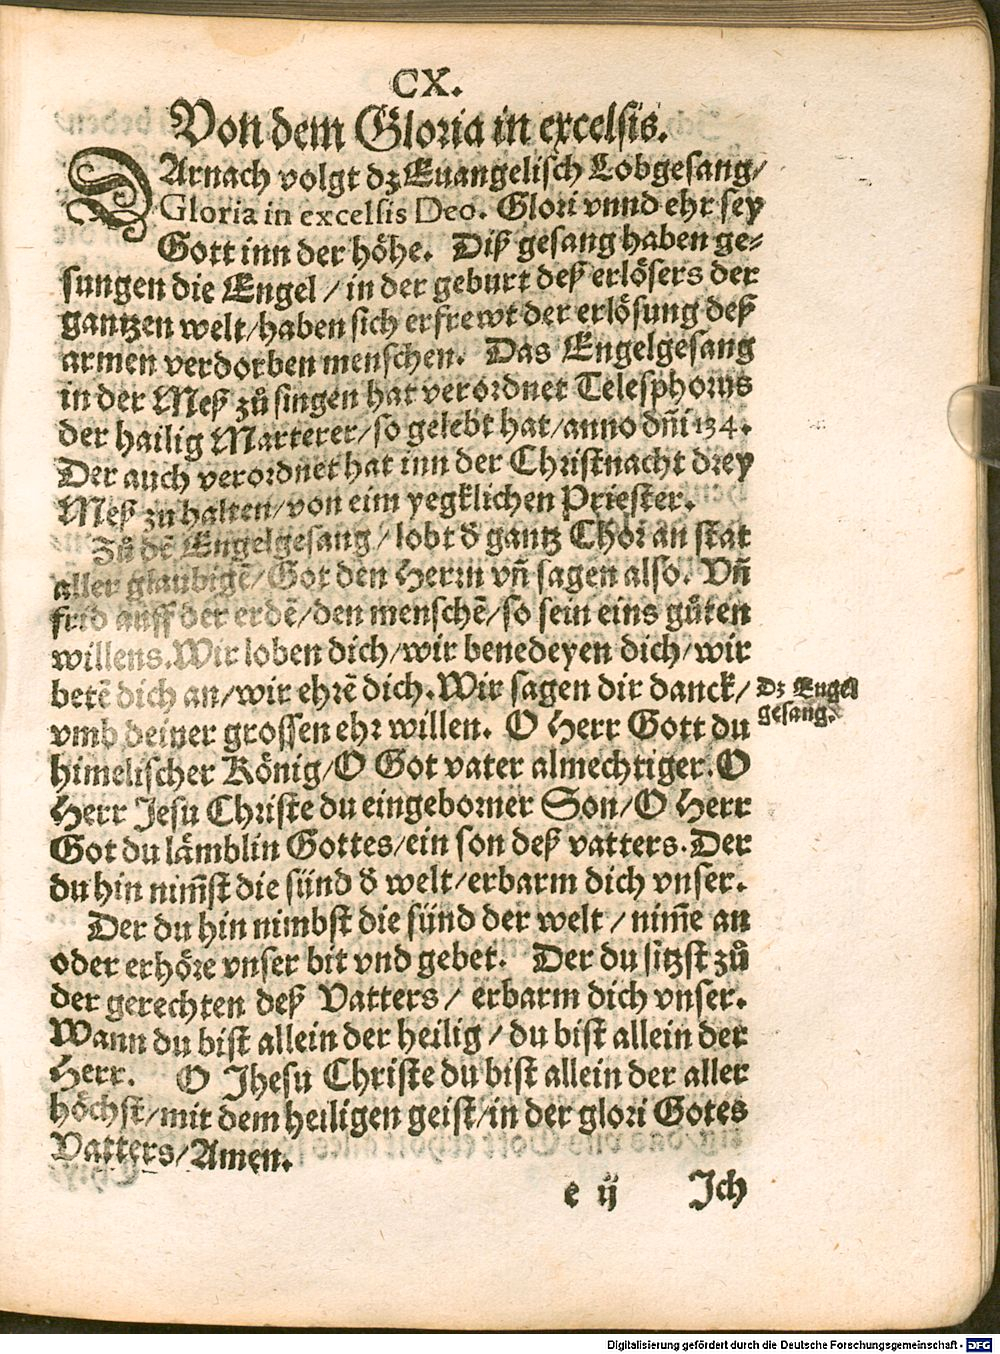 CX.
Von dem Gloria in excelsis.
DArnach volgt dz Euangelisch Lobgesang/
Gloria in excelsis Deo. Glori vnnd ehr sey
Gott inn der höhe. Diß gesang haben ge-
sungen die Engel / in der geburt deß erlösers der
gantzen welt/haben sich erfrewt der erlösung deß
armen verdorben menschen. Das Engelgesang
in der Meß zů singen hat verordnet Telesphorus
der hailig Marterer/so gelebt hat/anno dñi 134.
Der auch verordnet hat inn der Christnacht drey
Meß zu halten/von eim yegklichen Priester.
Zů dē Engelgesang/lobt ð gantz Chor an stat
aller glaubigē/Got den Herrn vñ sagen also. Vñ
frid auff der erdē/den menschē/so sein eins gůten
willens.Wir loben dich/wir benedeyen dich/wir
betē dich an/wir ehrē dich.Wir sagen dir danck/
Dz Engel
gesang.
vmb deiner grossen ehr willen. O Herr Gott du
himelischer König/O Got vater almechtiger.O
Herr Jesu Christe du eingeborner Son/O Herr
Got du lämblin Gottes/ein son deß vatters.Der
du hin nim̃st die sünd ð welt/erbarm dich vnser.
Der du hin nimbst die sünd der welt / nim̃e an
oder erhöre vnser bit vnd gebet. Der du sitzst zů
der gerechten deß Vatters/ erbarm dich vnser.
Wann du bist allein der heilig / du bist allein der
Herr. O Jhesu Christe du bist allein der aller
höchst/mit dem heiligen geist/in der glori Gotes
Vatters/Amen.
e ij Jch
Digitalisierung gefördert durch die Deutsche Forschungsgemeinschaft - DFG